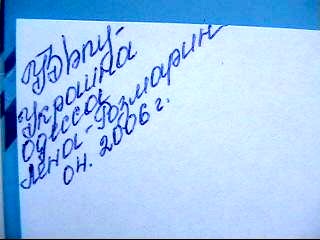 УЗЪРУ-
Украина
Одесса
Лена-Розмарин
04. 2006 г.